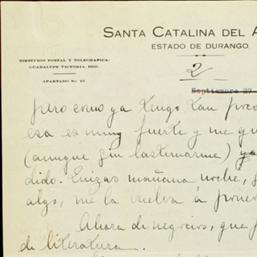 SANTA CATALINA DEL A
ESTADO DE DURANGO.
DIRECCION POSTAL Y TELEGRAFICA:
GUADALUPE VICTORIA, DGO.
APARTADO No.
2
Septiembre 27
pero como ya tengo tan poco
esa es muy fuerte y me qu
(aunque sin lastimarme) ya
dido. Quizas mañana noche,
algo, me la vuelva á poner
Ahora de negocios, que p
de literatura.